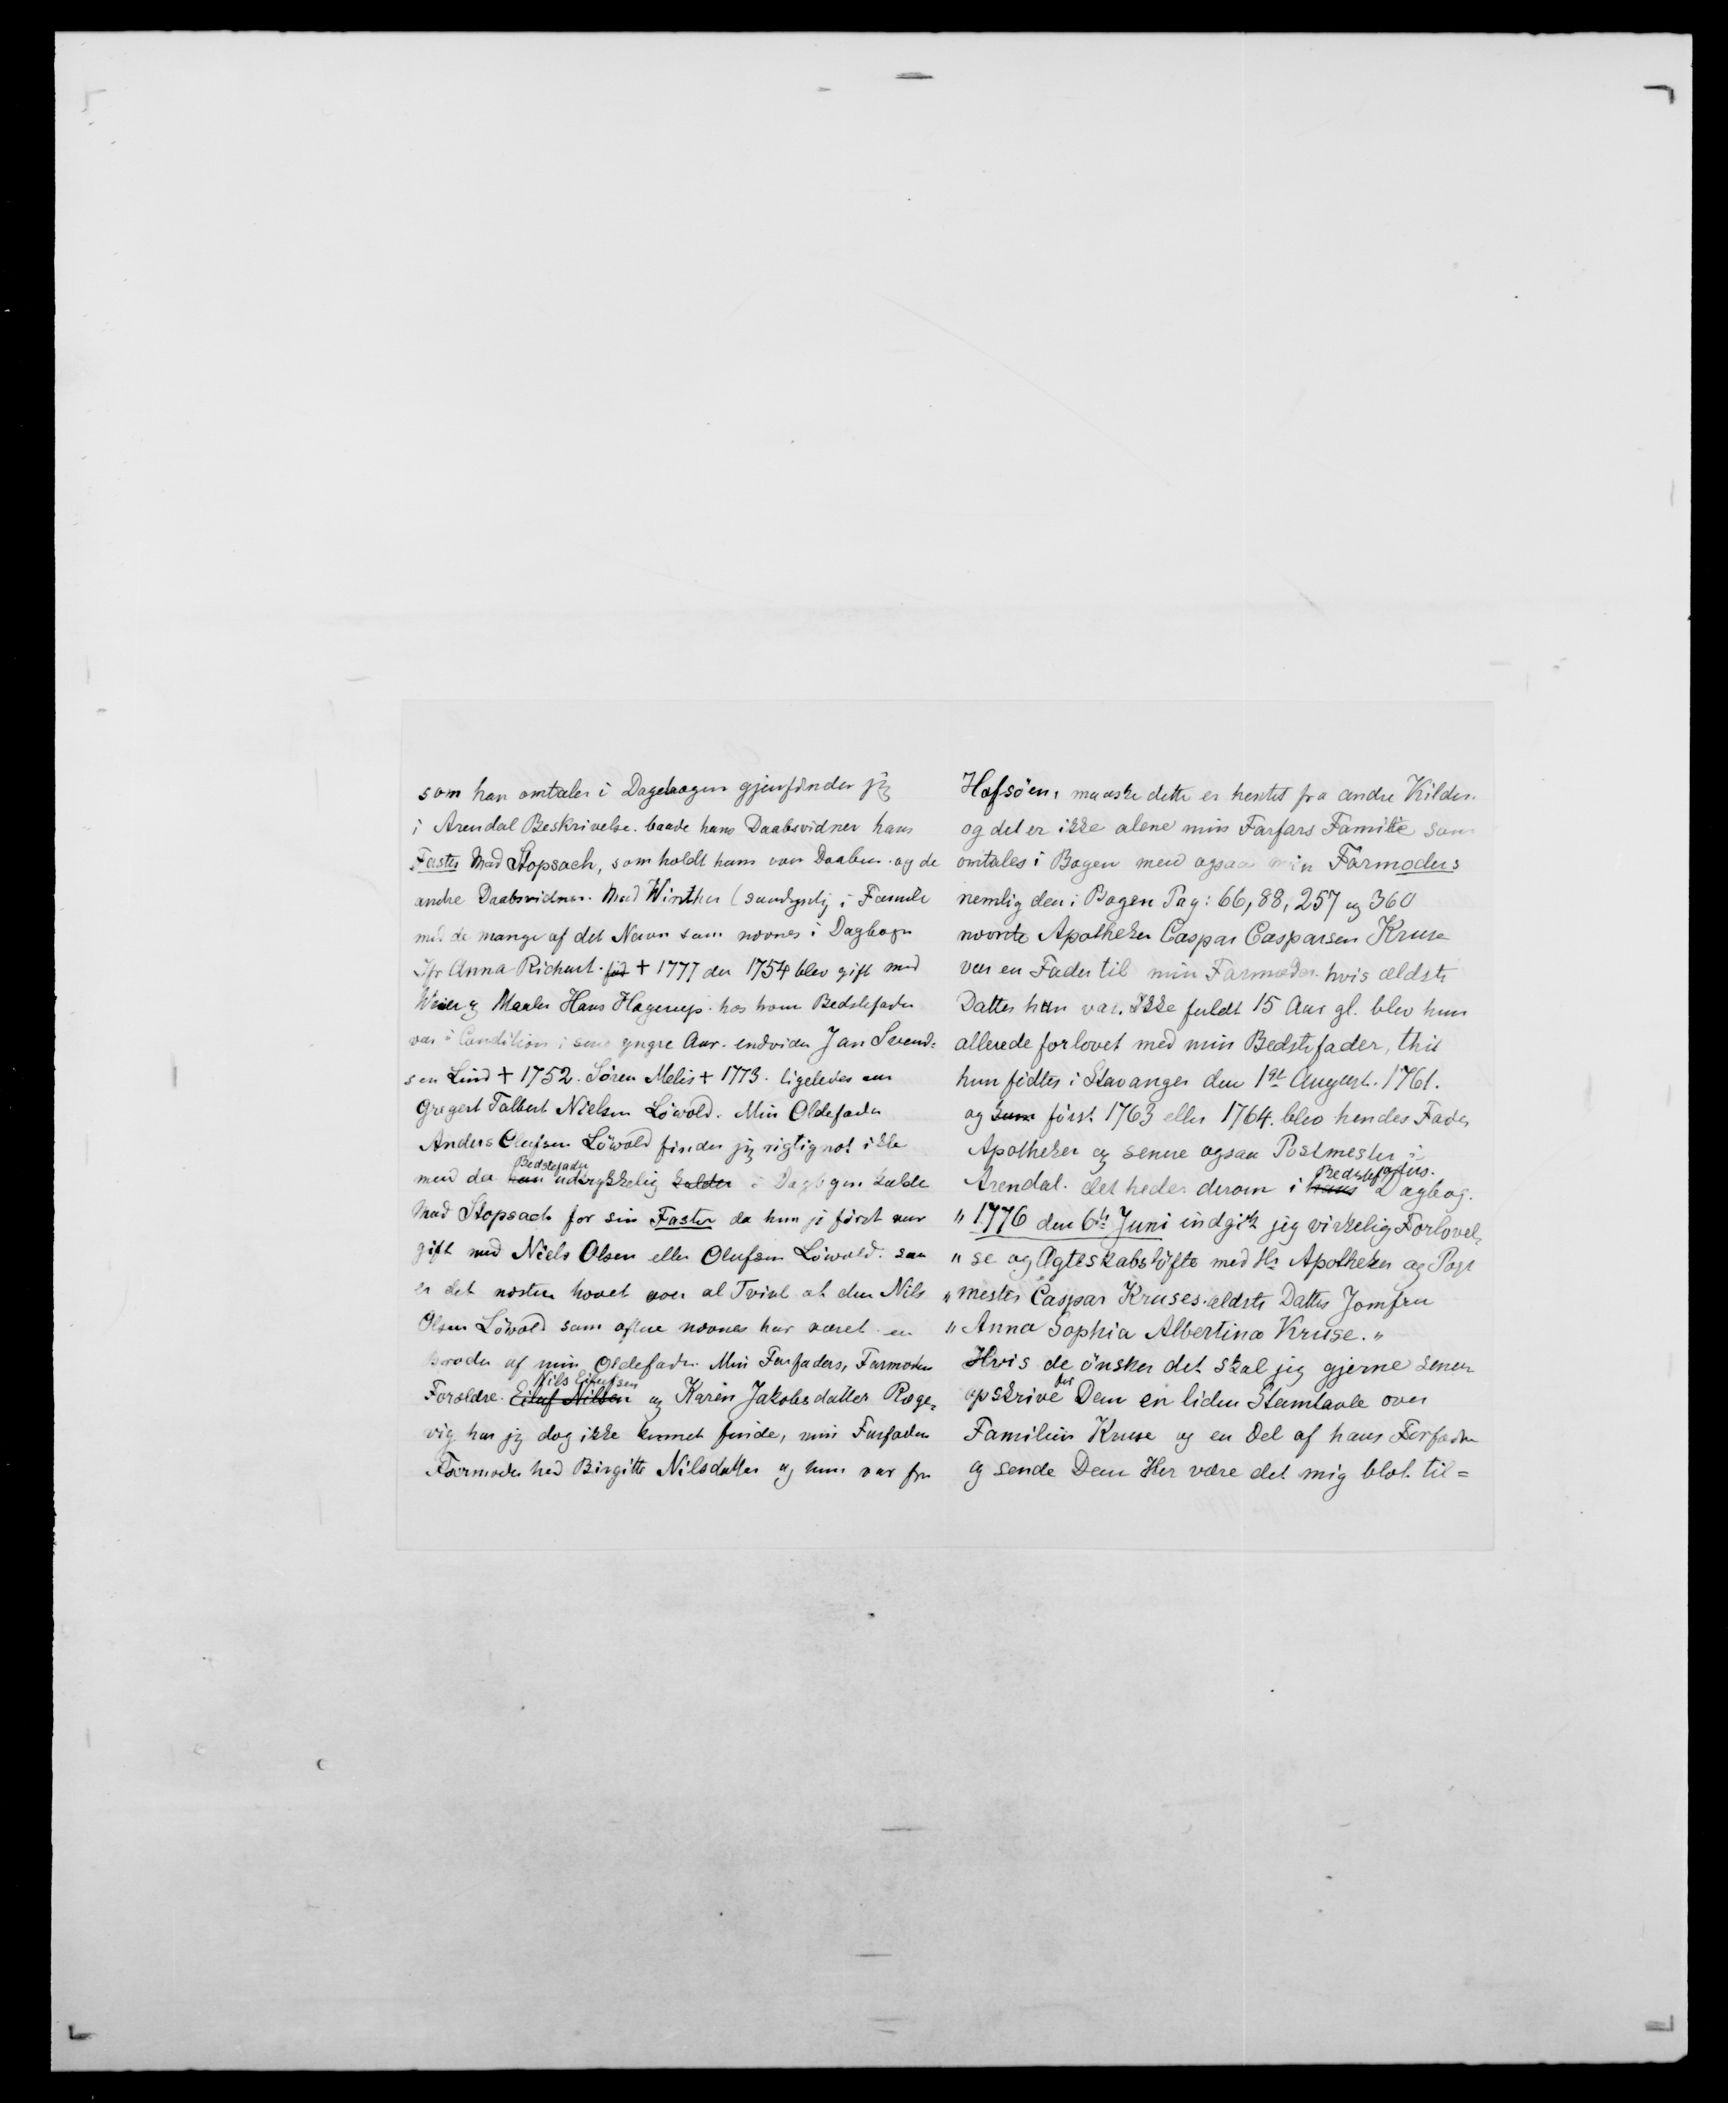 som han omtaler i Dagebogen gjenfinder jeg
i Arendal Beskrivelse. baade hans Daabsvidner hans
Faster Mad Stopsach, som holdt ham over Daaben. og de
andre Daabsvidner. Mad Winther (sandsynlig i Familie
med de mange af det Navn som nævnes i Dagbogen
Jfr Anna Richert. fød † 1777 der 1754 blev gift med
og Maaler Hans Hagerup. hos hvem Bedstefader
var i Condition i sine yngre Aar. endvidere Jan Svend=
sen Lind † 1752. Sören Melis † 1773. ligeledes
Gregert Talbert Nielsen Löwold. Min Oldefader
Anders Olufsen Löwold finder jeg rigtignok ikke
men da han Bedstefader udtrykkelig kalder i Dagbogen kalde
Mad Stopsach for sin Faster da hun jo först var
gift med Niels Olsen eller Olufsen Löwold. saa
er det næsten hævet over al Tvivl at den Nils
Olsen Löwold som oftere nævnes har været en
broder af min Oldefader. Min Farfaders, Farmoders
Forældre. Eiluf Nilsen Nils Eilufsen og Karen Jakobsdatter Ræge=
vig har jeg dog ikke kunnet finde, min Farfaders
Farmoder hed Birgitte Nilsdatter og hun var fra
Hafsöen, maaske dette er hentet fra andre Kilder.
og det er ikke alene min Farfars Familie som
omtales i Bogen men ogsaa min Farmoders
nemlig den i Bogen Pag: 66, 88, 257 og 360
nævnte Apotheker Caspar Casparsen Kruse
var en Fader til min Farmoder. hvis ældste
Datter hun var. Ikke fuldt 15 Aar gl. blev hun
allerede forlovet med min Bedstefader, thi
hun födtes i Stavanger den 1st August. 1761.
og först 1763 eller 1764. blev hendes Fader
Apotheker og senere ogsaa Postmester i
Arendal. det heder derom i hans Bedstefaders. Dagbog.
" 1776 den 6te Juni indgik jeg virkelig Forlovel=
" se og Ægteskabslöfte med Hr Apotheker og Post
" mester Caspar Kruses ældste Datter Jomfru
" Anna Sophia Albertina Kruse. "
Hvis de önsker det skal jeg gjerne senere
opskrive for Dem en liden Stamtavle over
Familien Kruse og en Del af hans Forfædre
og sende Dem Her være det mig blot til=